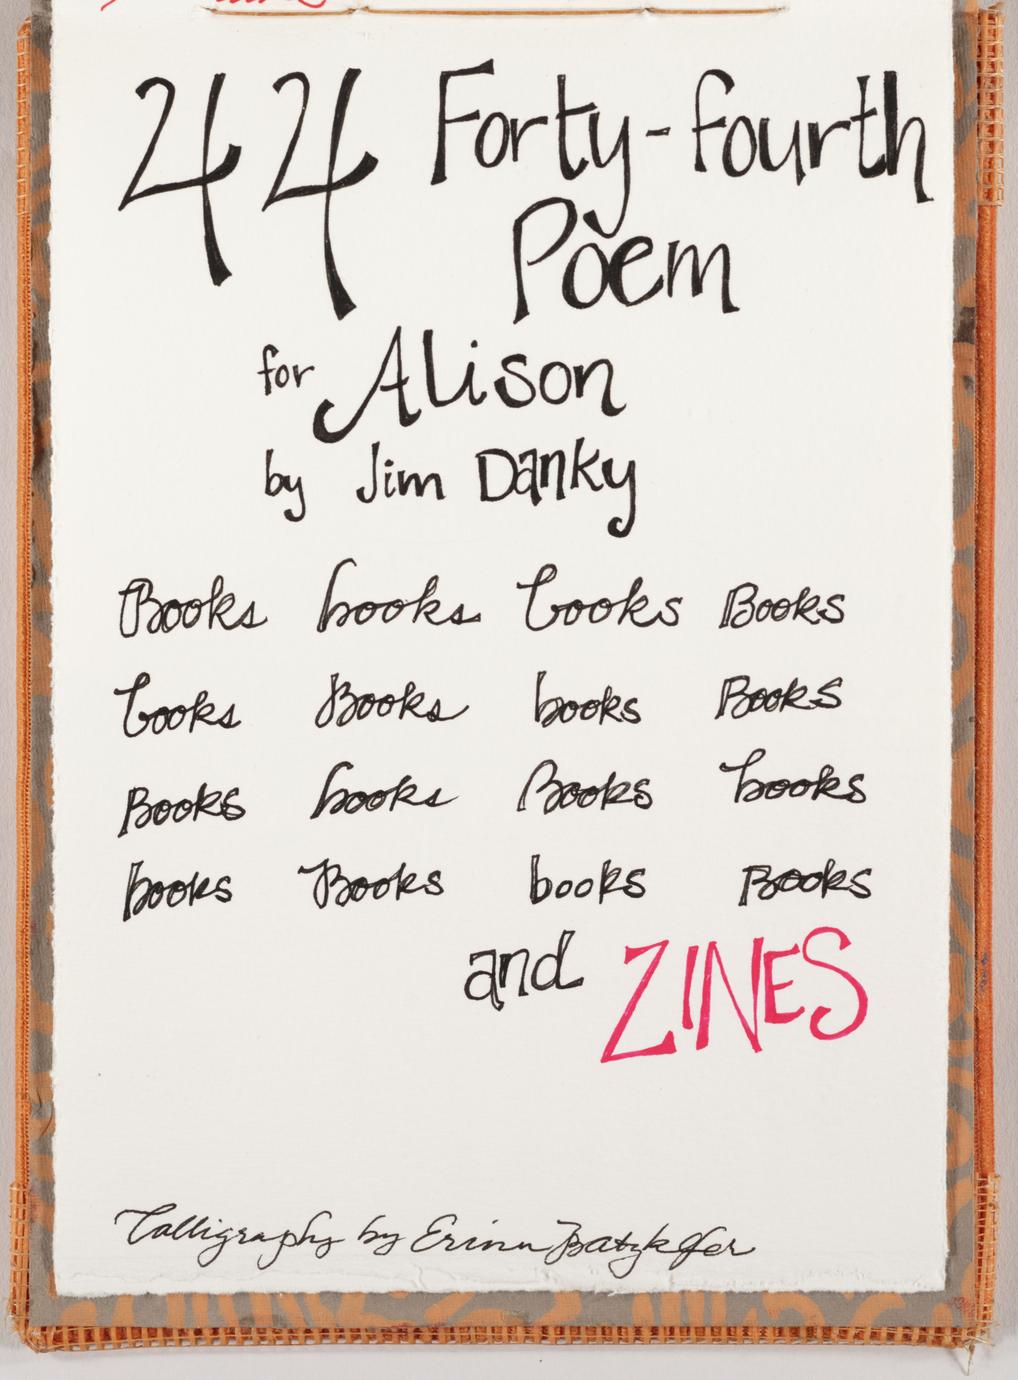 44 Forty-fourth
Poem
for Alison
by Jim Danky
Books books books Books
books Books books Books
Books books Books books
books Books books Books
and ZINES
Calligraphy by Erinn Batykefer